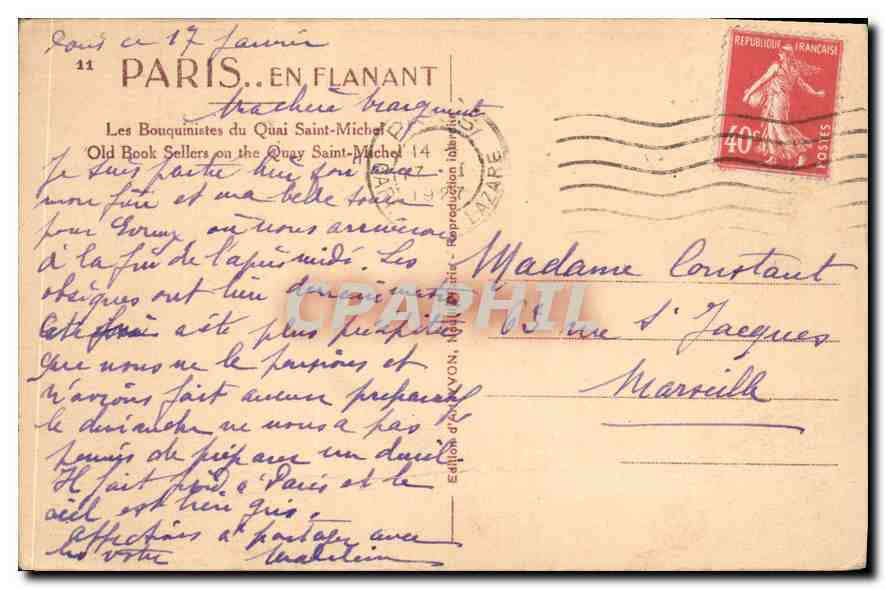 ce 17 Janvier
11 PARIS.. EN FLANANT
Ma chère
Les Bouquinistes du Quai Saint-Michel
Old Book Sellers on the Quay Saint-Michel
Je suis partie hier
mon frère et ma belle soeur
pour où nous arriverons
à la fin de l'après midi. Les
obsèques ont lieu
a été plus précipité
que nous ne le pensions et
n'avions fait aucun préparatif
le dimanche ne nous a pas
permis de préparer un deuil.
Il fait froid à Paris et le
ciel est très gris.
Affections à partager avec
les vôtres Madeleine
Edition d'Art YVON, Reproduction interdite
14
17 I
1927
LAZARE
REPUBLIQUE FRANÇAISE
40c
POSTES
Madame Constant
63 rue St Jacques
Marseille
CPAPHIL